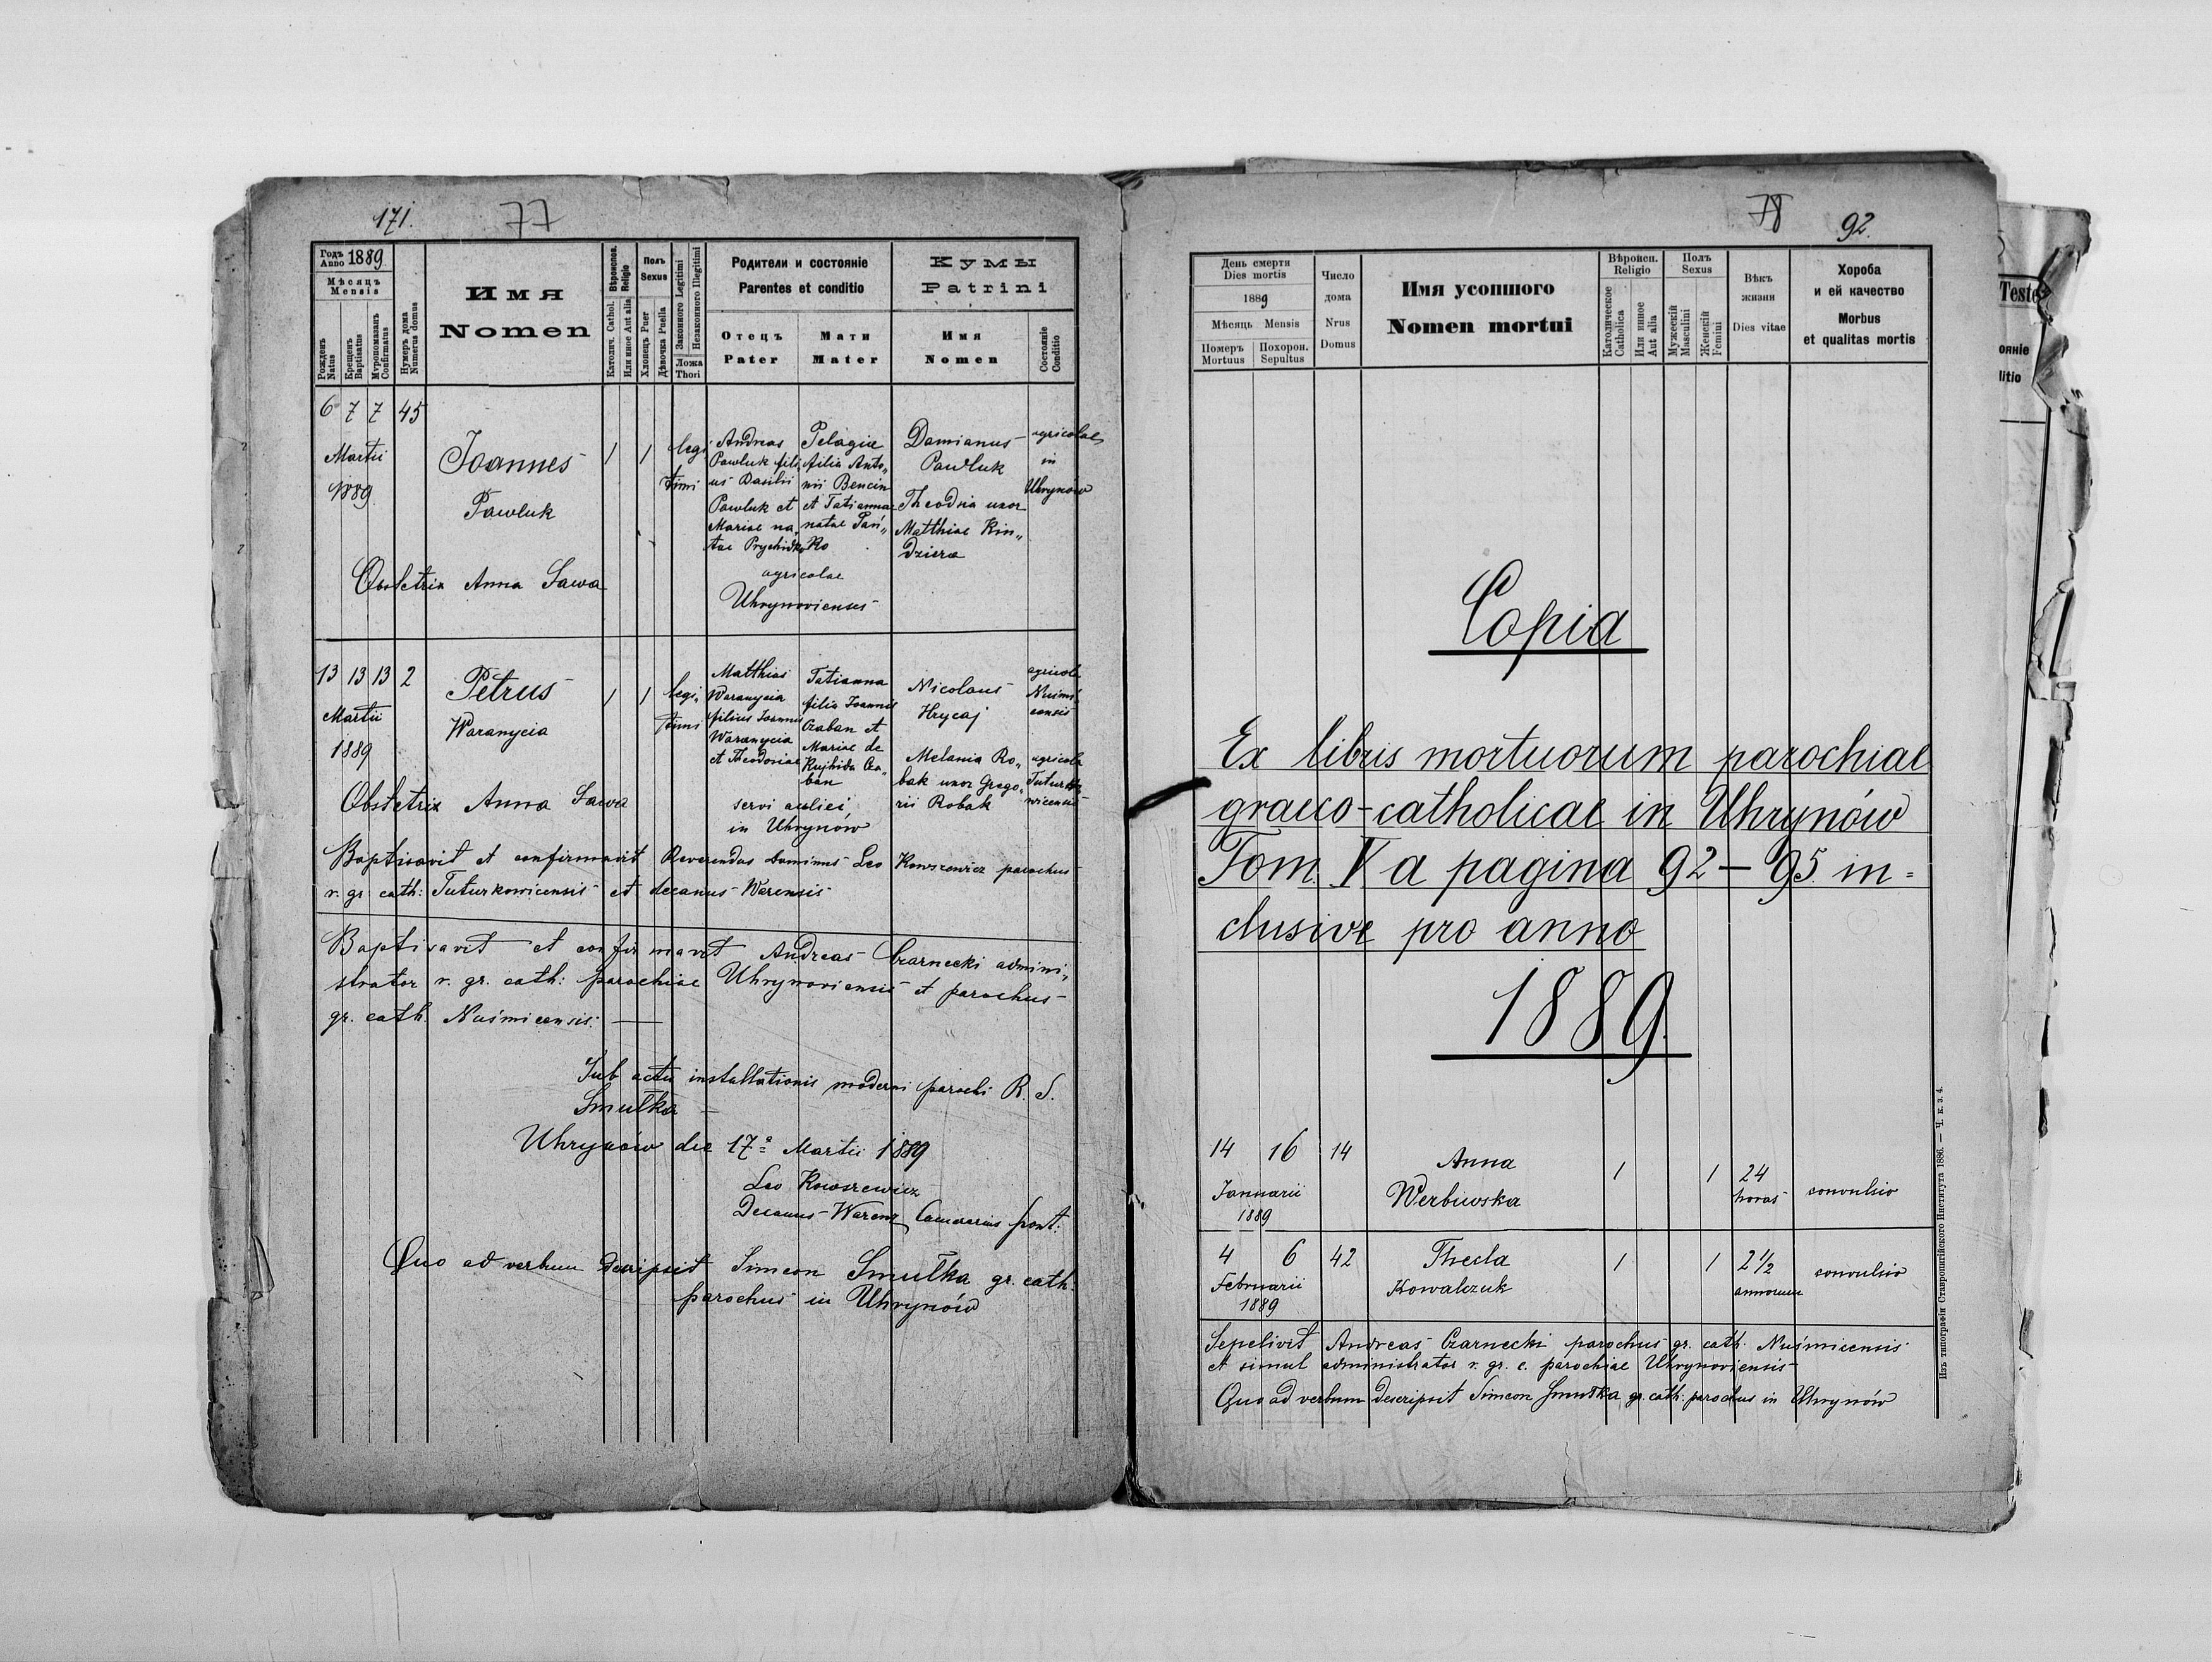 171.
77
Годъ
Anno 1889
Мѣсяцъ
Mensis
Рожденъ
Natus
Крещенъ
Baptisatus
Муропомазанъ
Confirmatus
Нумеръ дома
Numerus domus
Имя
Nomen
Вѣроиспов.
Religio
Католич. Cathol.
Или иное Aut alia
Полъ
Sexus
Хлопецъ Puer
Дѣвочка Puella
Законного Legitimi
Незаконного Illegitimi
Ложа
Thori
Родители и состояніе
Parentes et conditio
Отецъ
Pater
Мати
Mater
Кумы
Patrini
Имя
Nomen
Состояніе
Conditio
6 7 7 45
Martii
1889
Joannes
Pawluk
1 1
legi
timi
Andreas
Pawluk fili
us Basilii
Pawluk et
Mariae na
tae Prychidko
Pelagia
filia Anto„
nii Bencin
et Tatianna
natae Pań„
ko
agricolae
Uhrynovienses
Damianus
Pawluk
Theodsia uxor
Matthiae Kin„
dziera
agricolae
in
Uhrynów
Obstetrix Anna Sawa
13 13 13 2
Martii
1889
Petrus
Waranycia
1 1
legi„
timi
Matthias
Waranycia
filius Joannis
Waranycia
et Theodosiae
Tatianna
filia Joannis
Czaban et
Mariae de
Kujbida Cza„
ban
servi aulici
in Uhrynów
Nicolaus
Hrycaj
agricola
Nuśmi„
censis
Melania Ro„
bak uxor Grego„
rii Robak
agricola
Tuturko
wicensis
Obstetrix Anna Sawa
Baptisavit et confirmavit Reverendus Dominus Leo Kowszewicz parochus
r. gr. cath: Tuturkowicensis et decanus Warensis
Baptisavit et confirmavit Andreas Czarnecki admini„
strator r. gr. cath: parochiae Uhrynoviensis et parochus
gr. cath. Nuśmicensis. —
Sub actu installationis moderni parochi R. S.
Smułka —
Uhrynów die 17ª Martii 1889
Leo Kowszewicz
Decanus Warenz Camerarius pont:
Quo ad verbum descripsit Simeon Smułka gr. cath.
parochus in Uhrynów
78
92.
День смерти
Dies mortis
1889
Мѣсяць Mensis
Померъ
Mortuus
Похорон.
Sepultus
Число
дома
Nrus
Domus
Имя усопшого
Nomen mortui
Вѣроисп.
Religio
Католическое
Catholica
Или иное
Aut alia
Полъ
Sexus
Мужескій
Masculini
Женскій
Femini
Вѣкъ
жизни
Dies vitae
Хороба
и ей качество
Morbus
et qualitas mortis
Copia
Ex libris mortuorum parochiae
graeco-catholicae in Uhrynów
Tom. V a pagina 92 — 95. in =
clusive pro anno
1889.
14 16 14
Januarii
1889
Anna
Werbiwska
1 1
24
horas
convulsio
4 6 42
Februarii
1889
Thecla
Kowalczuk
1 1
2 1/2
annorum
convulsio
Sepelivit Andreas Czarnecki parochus gr. cath. Nuśmicensis
et simul administrator r. gr. c. parochiae Uhrynoviensis
Quo ad verbum descripsit Simeon Smułka gr. cath. parochus in Uhrynów
Изъ типографіи Ставропигійского Института 1886. — Ч. к. з. 4.
Teste
ояніе
litio